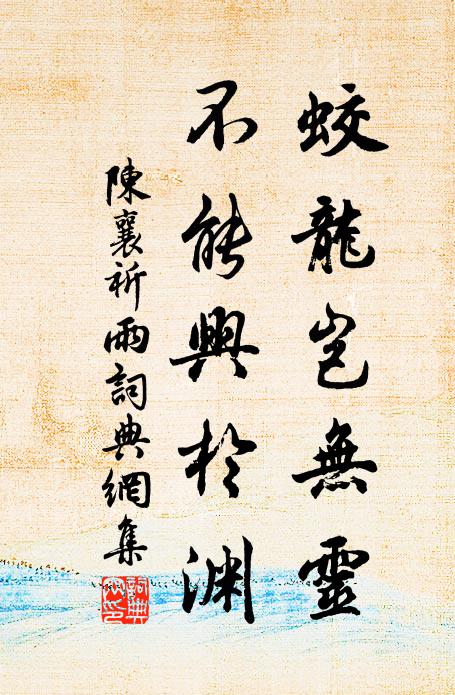 蛟龍豈無靈
不能興於渊
陳襄祈雨詞典網集